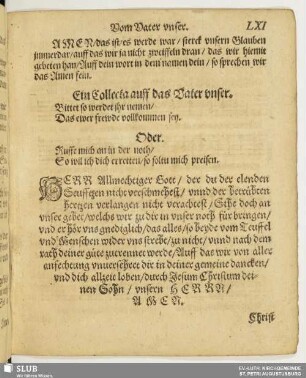 Vom Vater unser. LXI
AMEN/das ist/es werde war/sterck unsern Glauben
jmmerdar/auff das wir ja nicht zweiffeln dran/das wir hiemit
gebeten han/Auff dein wort in dem namen dein/so sprechen wir
das Amen fein.
Ein Collecta auff das Vater unser.
Bittet so werdet jhr nemen/
Das ewer frewde vollkommen sey.
Oder.
Ruffe mich an in der noth/
So wil ich dich erretten/so soltu mich preisen.
HERR Allmechtiger Gott/der du der elenden
Seufftzen nicht verschmehest/unnd der betrübten
hertzen verlangen nicht verachtest/Sihe doch an
unser gebet/welchs wir zu dir in unser noth für bringen/
und erhör uns gnediglich/das alles/so beyde vom Teuffel
und Menschen wider uns strebt/zu nicht/unnd nach dem
rath deiner güte zutrennet werde/Auff das wir von aller
anfechtung unversehret dir in deiner gemeine dancken/
und dich allzeit loben/durch Jesum Christum dei-
nen Sohn/unsern HERRN/
AMEN.
Christ
SLUB
Wir führen Wissen.
EV.-LUTH. KIRCHGEMEINDE
ST. PETRI AUGUSTUSBURG